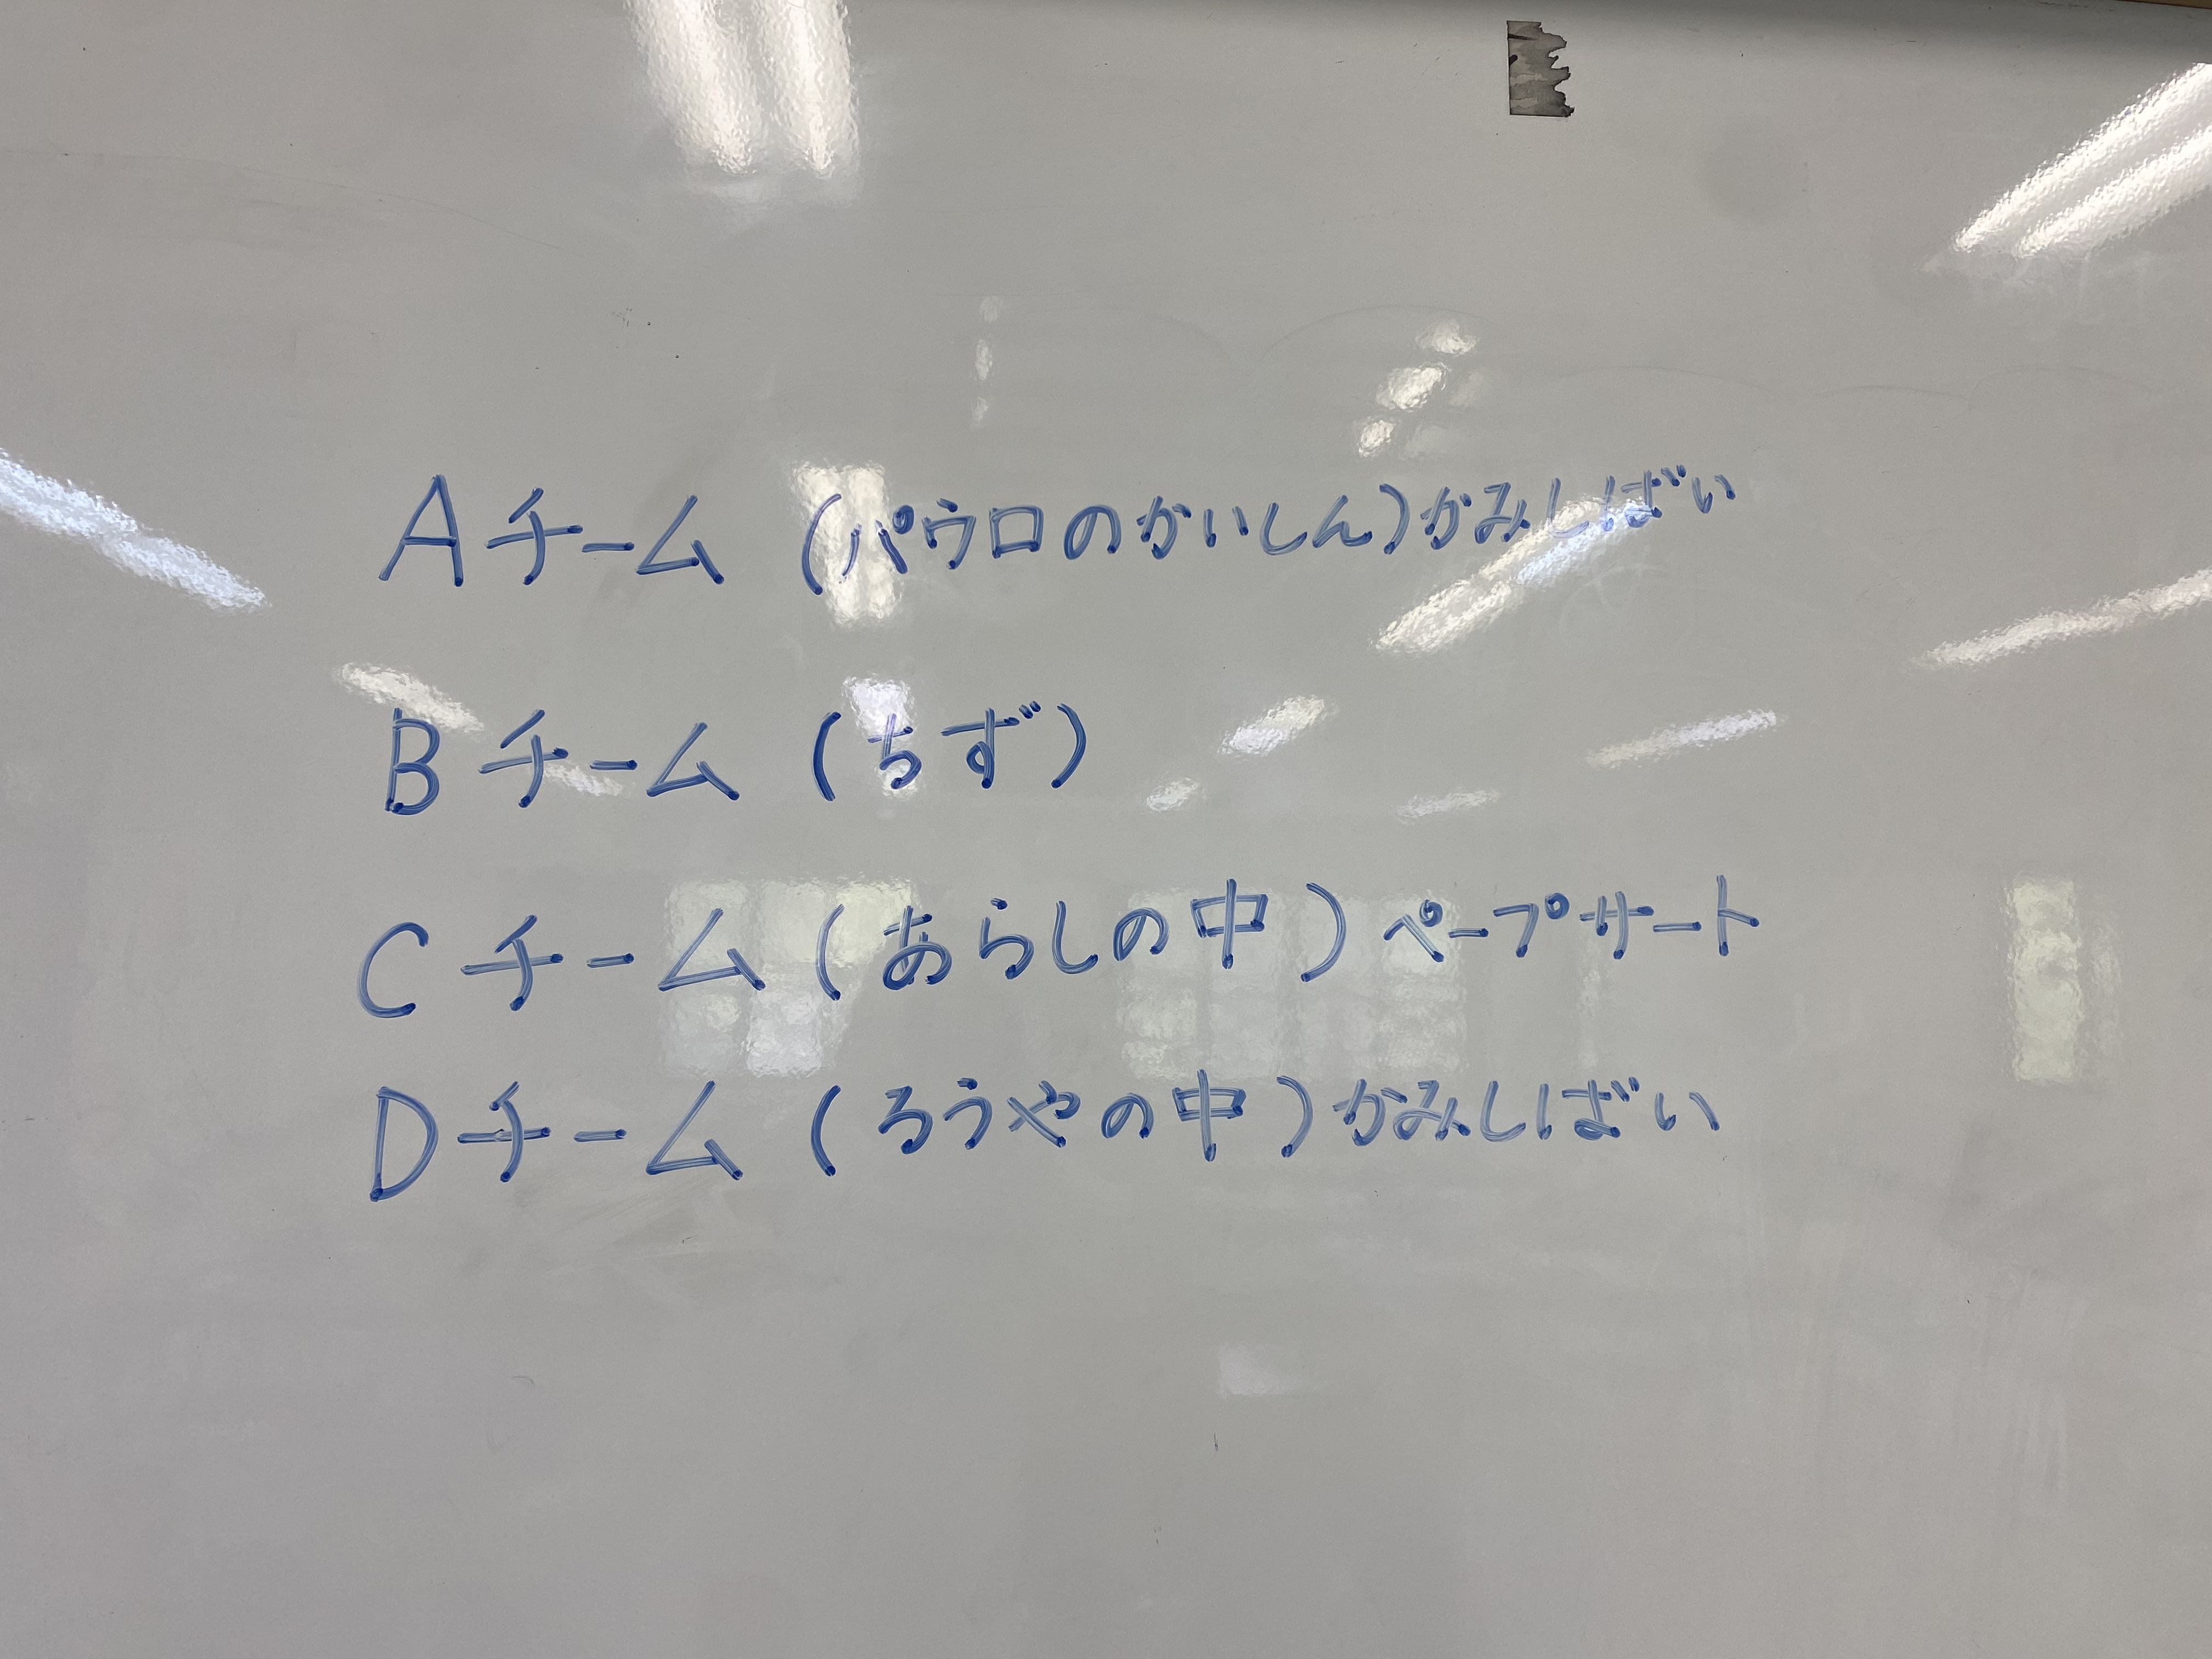 Aチーム (パウロのかいしん)かみしばい
Bチーム (ちず)
Cチーム (あらしの中) ペープサート
Dチーム (ろうやの中)かみしばい